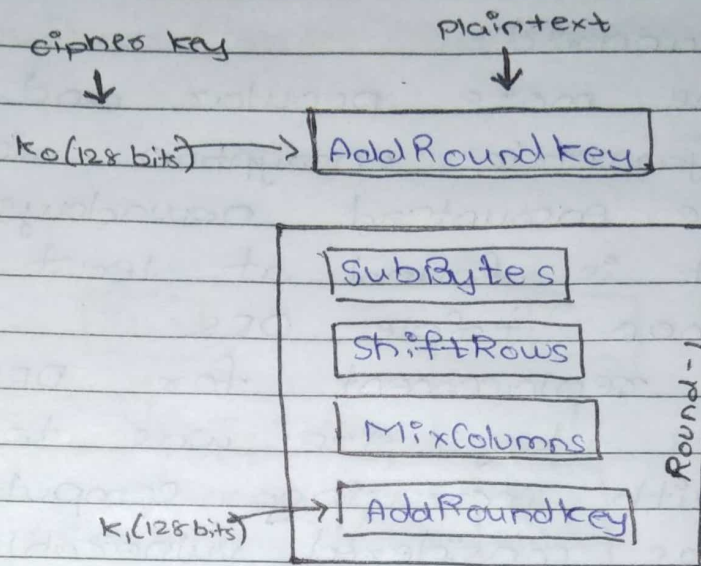 cipher key
plaintext
K0 (128 bits)
AddRoundkey
SubBytes
ShiftRows
MixColumns
Round-1
K1 (128 bits)
AddRoundkey